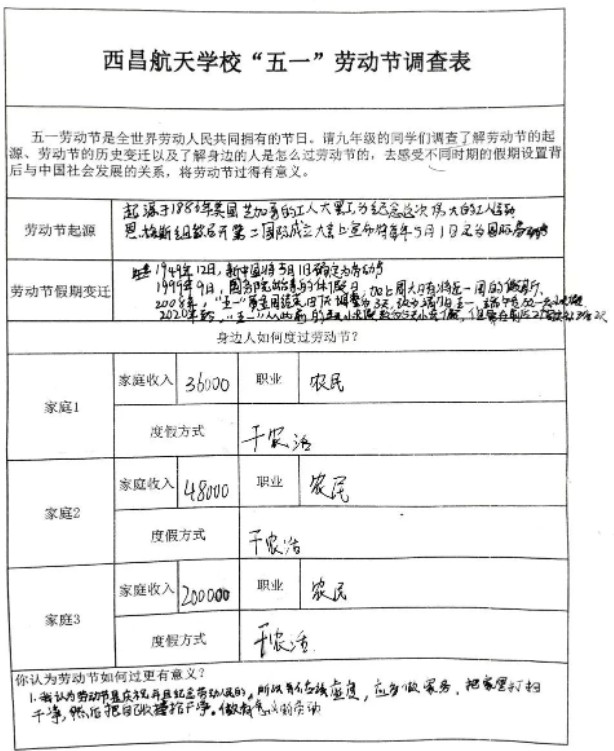 西昌航天学校“五一”劳动节调查表
五一劳动节是全世界劳动人民共同拥有的节日。请九年级的同学们调查了解劳动节的起
源、劳动节的历史变迁以及了解身边的人是怎么过劳动节的，去感受不同时期的假期设置背
后与中国社会发展的关系，将劳动节过得有意义。
劳动节起源
起源于1886年美国芝加哥的工人大罢工为纪念这次伟大的工人运动
恩格斯组织召开第二国际成立大会上宣布将每年5月1日定为国际劳动节
劳动节假期变迁
1949年12月，新中国将5月1日确定为劳动节
1999年9月，国务院 休假日，加上周末日有将近一周的
2008年，“五一”黄金周 7天调整为3天
2020年 “五一”
身边人如何度过劳动节？
家庭1 家庭收入 36000 职业 农民
度假方式 干农活
家庭2 家庭收入 48000 职业 农民
度假方式 干农活
家庭3 家庭收入 200000 职业 农民
度假方式 干农活
你认为劳动节如何过更有意义？
1.我认为劳动节是庆祝并且纪念劳动人民的，所以 应该 ，应当做家务，把家里打扫
干净，然后把自己收拾干净。做有意义的劳动